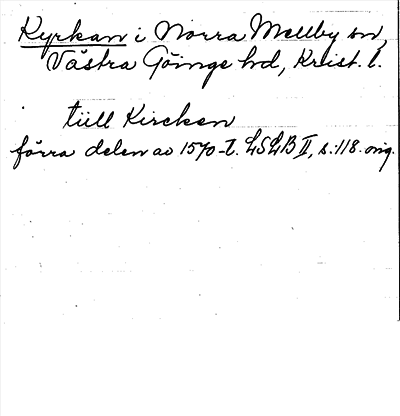 Kyrkan i Norra Mellby sn,
Västra Göinge hd, Krist. l.
tüll Kircken
förra delen av 1570-t. LSLB II, s. 118. orig.